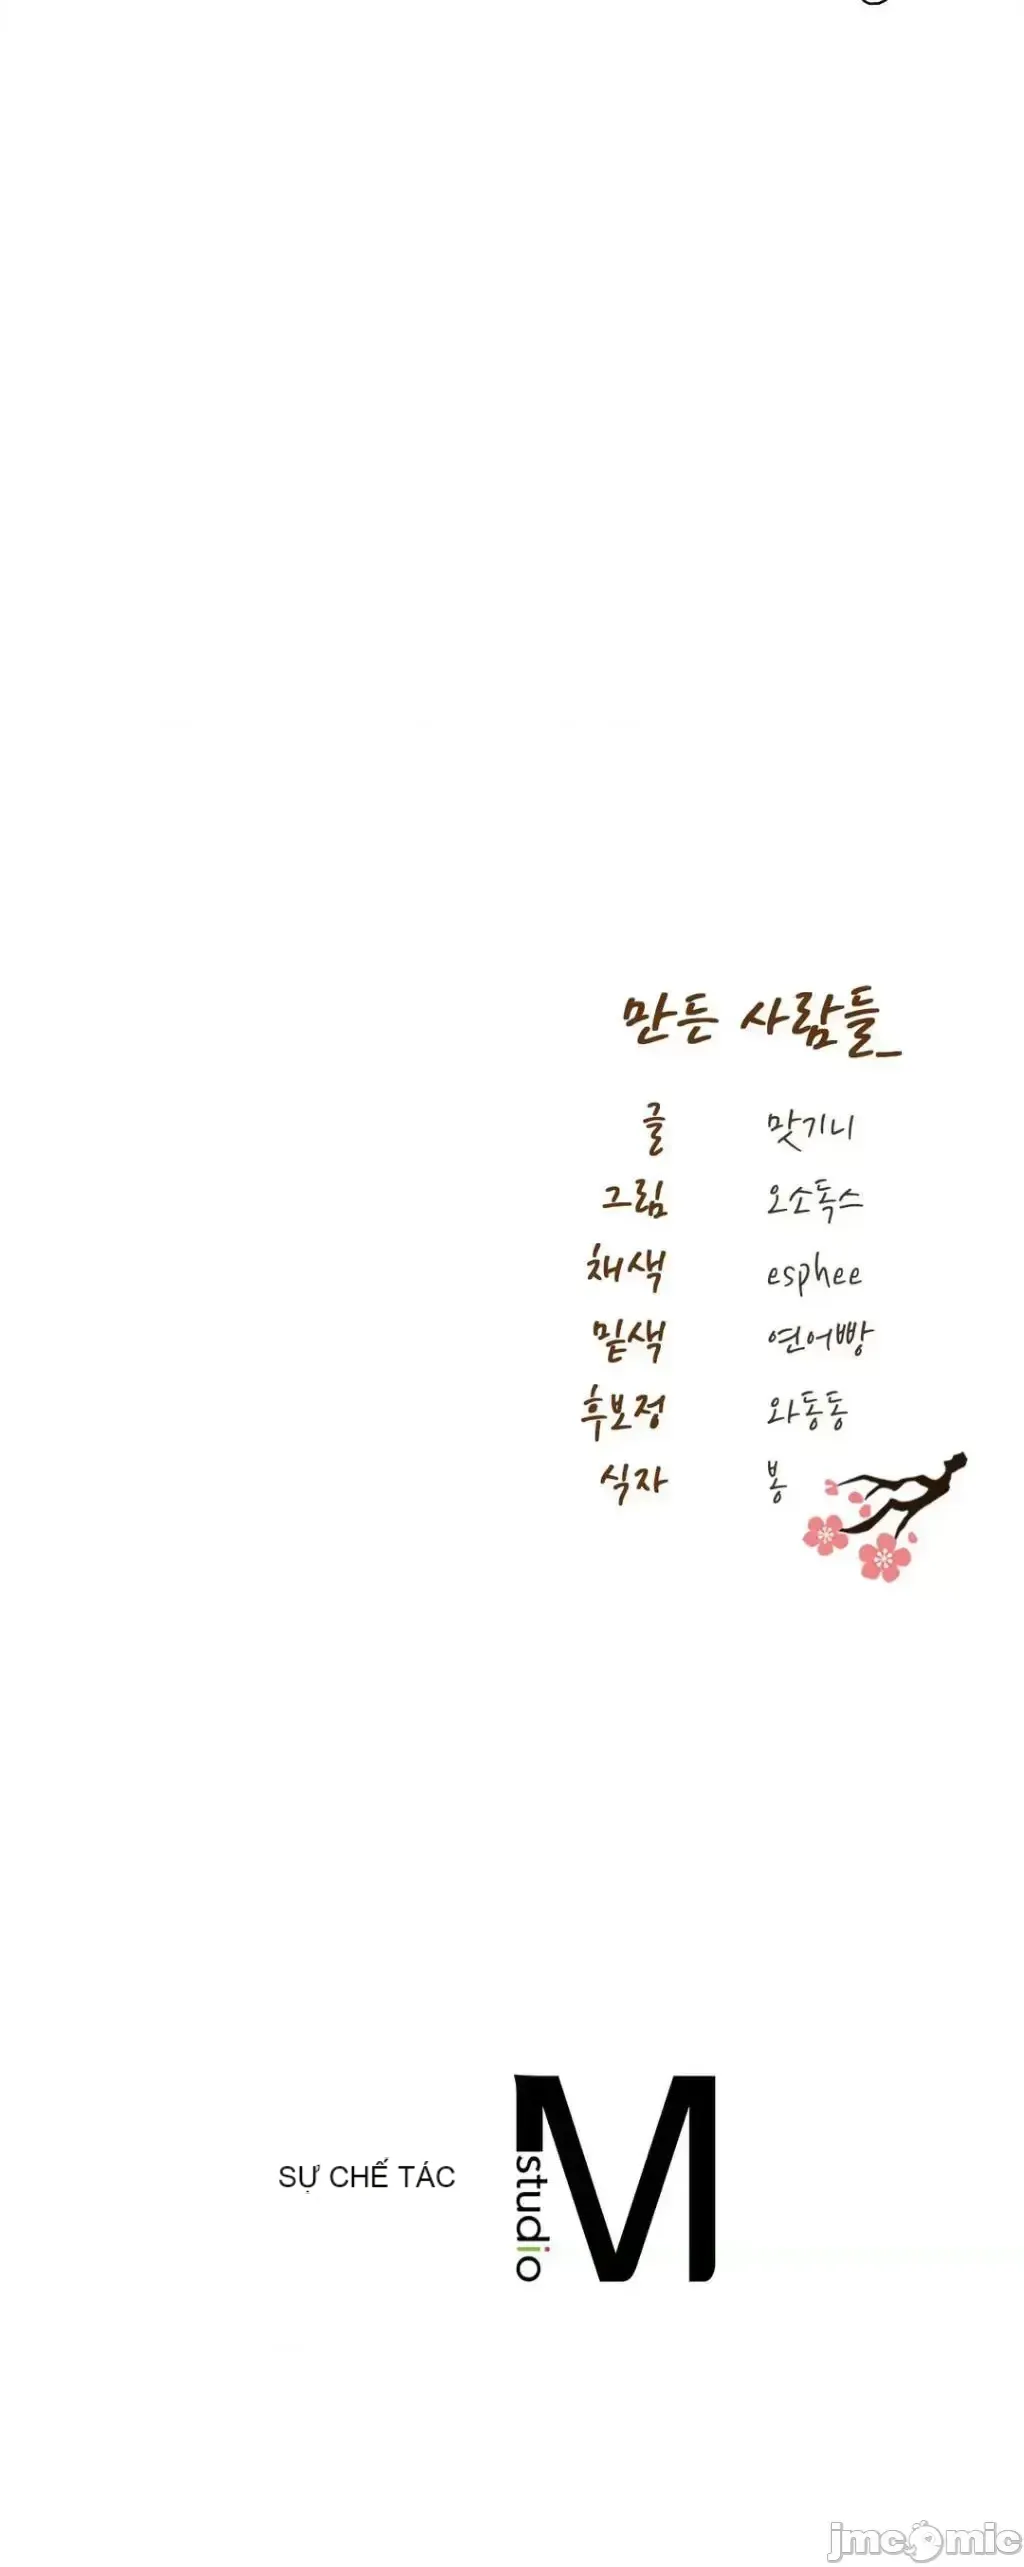 만든 사람들_
글 맛기니
그림 오소독스
채색 esphee
밑색 연어빵
후보정 와동동
식자 봉
SỰ CHẾ TÁC
M studio
jmcomic